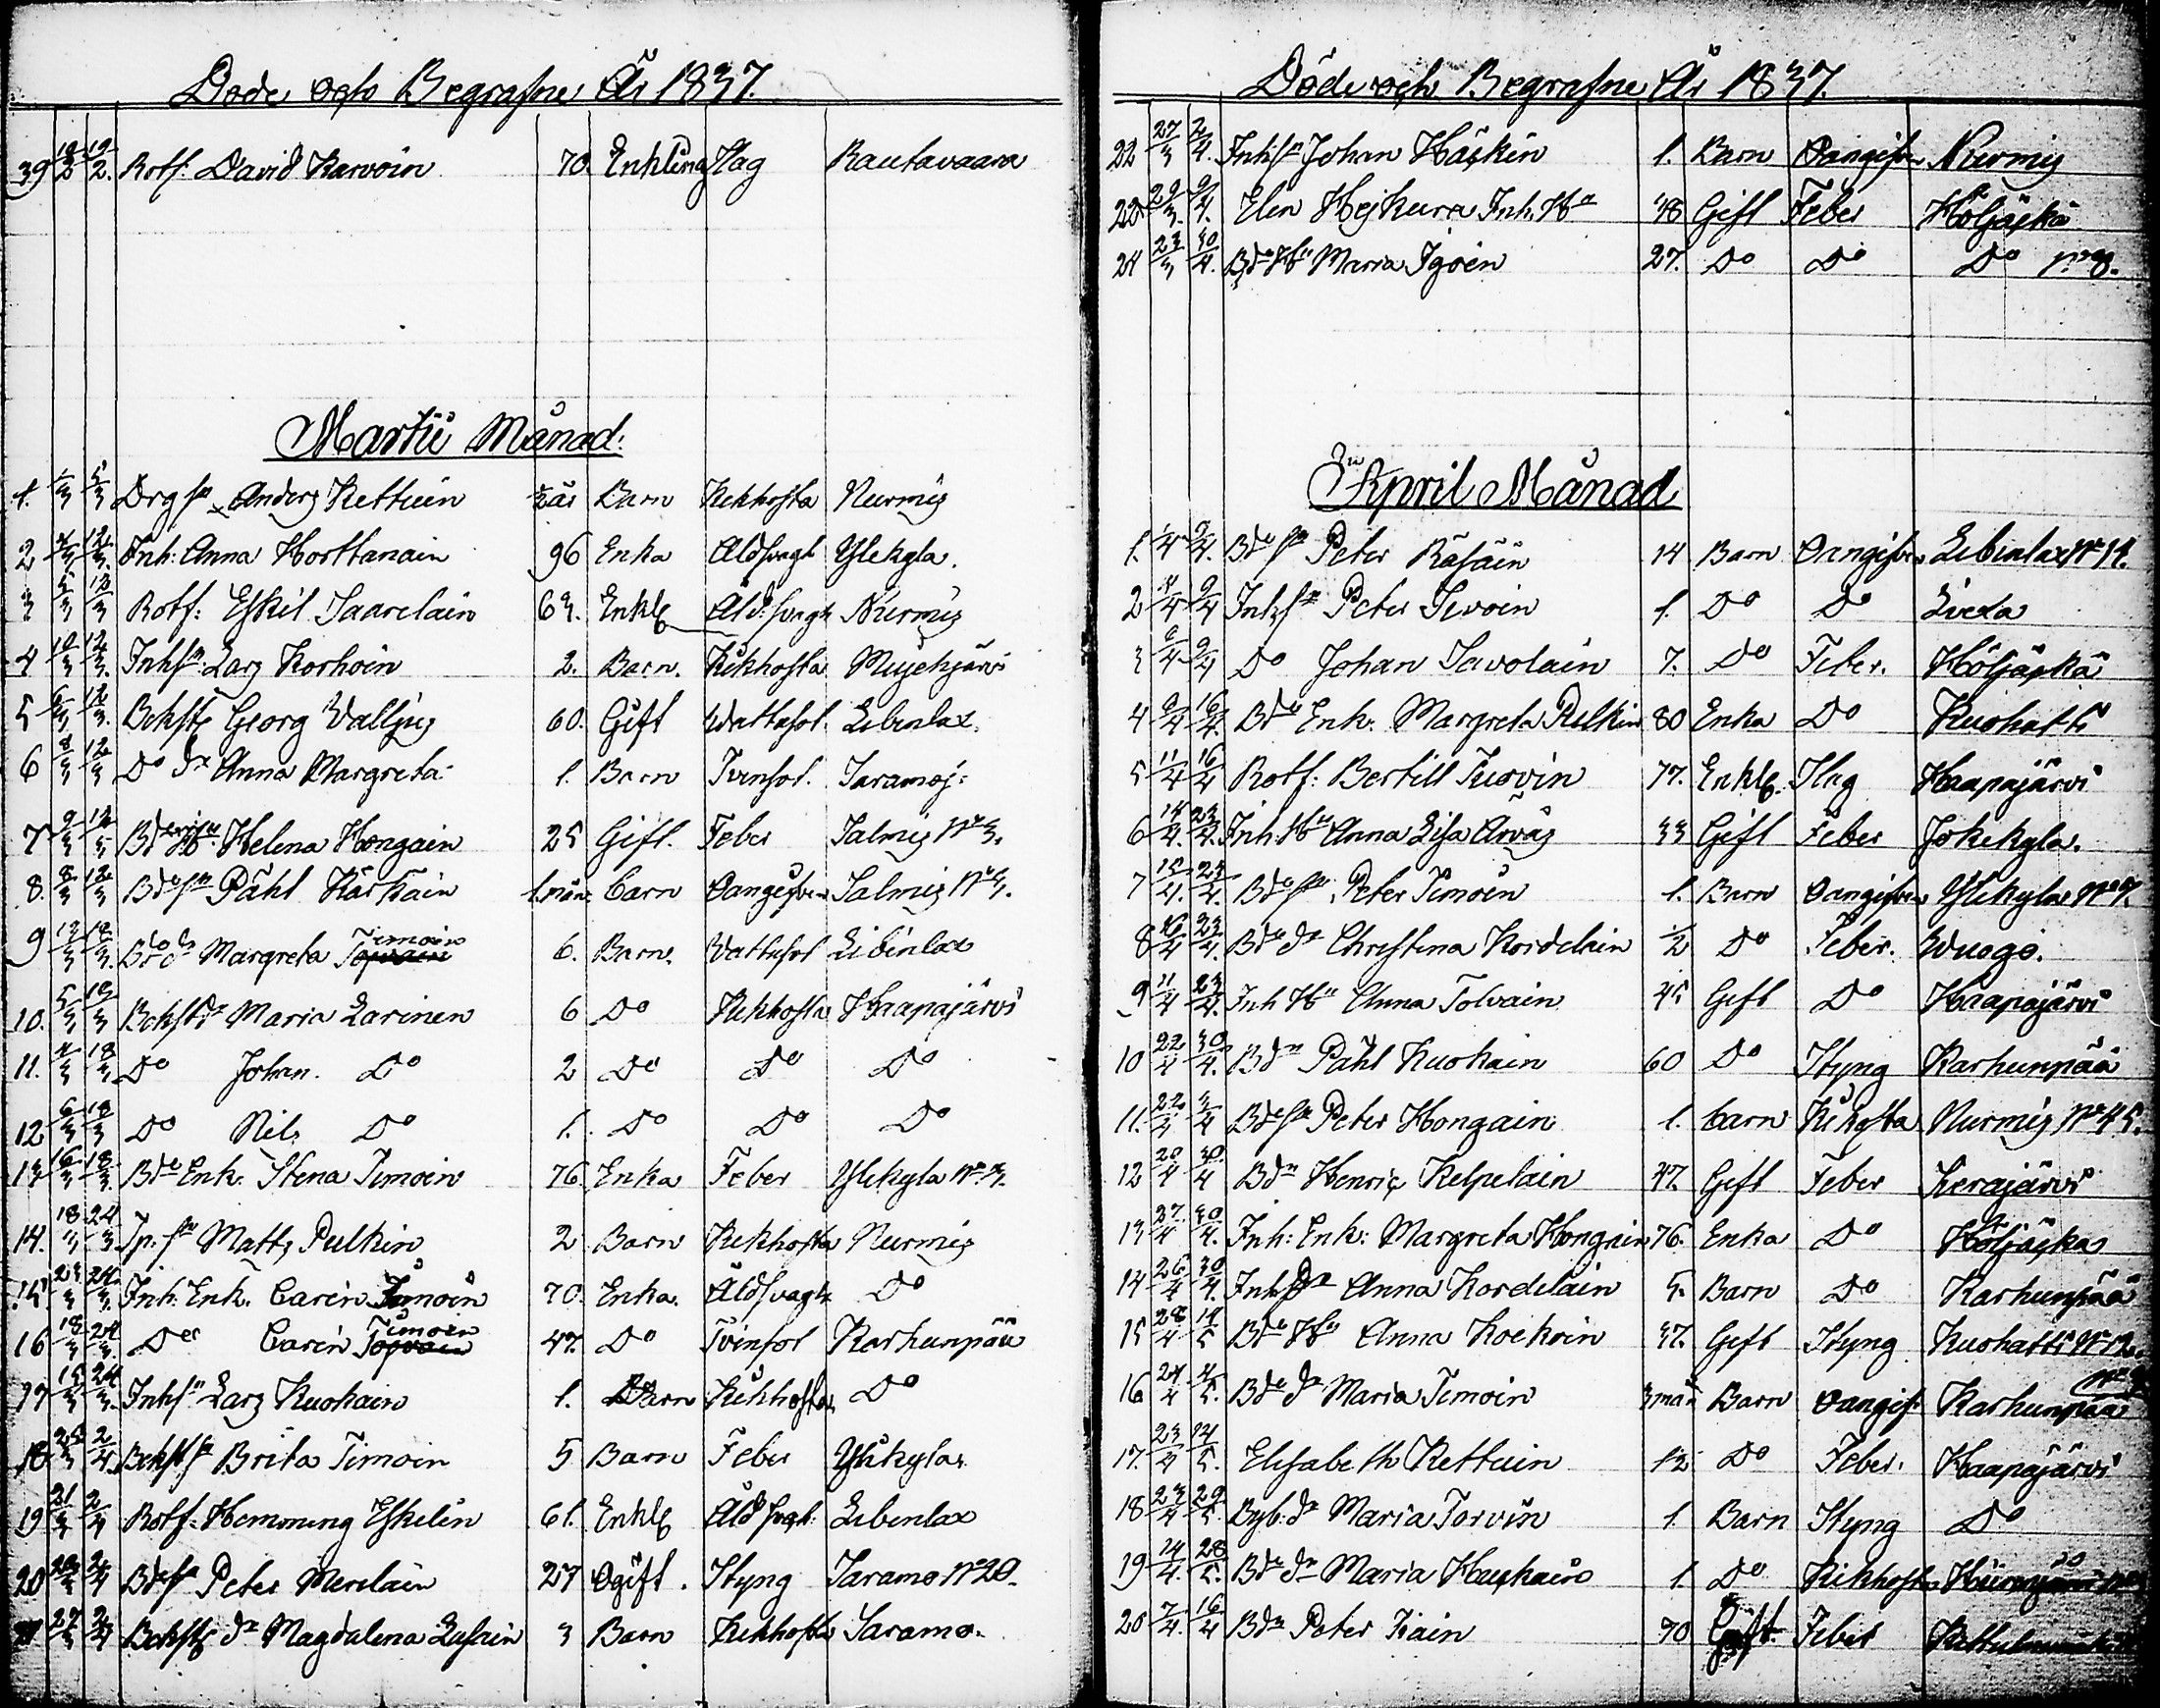 Döde och Begrafne År 1837.
39 18/2 19/2. Rotf. David Karvoin 70. Enkling Slag Rautavaara
Martii Månad.
1. 1/3 5/3 Drg sn Anders Kettuin ½ år Barn Kikhosta Nurmis
2 4/3 12/3. Inh: Anna Horttanain 96 Enka Åldsvagh Ylikyla.
3 5/3 12/3 Rotf: Eskil Saarelain 63. Enkl Åld:svagh Nurmis
4 10/3 12/3. Inhsn Lars Korhoin 2. Barn. Kikhosta Mujehjärvi
5 6/3 12/3. Bckst Georg Vallius 60. Gift Wattusot. Libenlax.
6 8/3 12/3 Do dr Anna Margreta 1. Barn Tvinsot. Saramoj:
7 9/3 12/3 Helena Hongain 25 Gift. Feber Salmis No 3.
8. 8/3 12/3 Bdesn Påhl Kärkäin 1. mån. barn Oangifven Salmis No
9 12/3 18/3. Bde dr Margreta Timoin 6. Barn. Vattusot Libinlax
10. 5/3 18/3 Bckst dr Maria Larinen 6 Do Kikhosta Haapajärvi
11. 4/3 18/3 Do Johan. Do 2 Do Do Do
12 6/3 18/3 Do Nils Do 1. Do Do Do
13 16/3 18/3. Bde Enk. Stena Timoin 76. Enka Feber Ylikyla No
14. 18/3 24/3 Sp. sn Matts Pulkin 2 Barn Kikhosta Nurmis
15 23/3 24/3. Inh. Enk. Carin Timoin 70. Enka. Åldsvagh Do
16 18/3 24/3. Do Carin Timoin 47. Do Tvinsot Karhunpää
17 15/3 24/3. Inhsn Lars Kuokain 1. Barn Kikhosta Do
18 25/3 2/4 Bckst Brita Timoin 5 Barn Feber Ylikyla
19 21/3 2/4 Rotf. Hemming Eskelin 61. Enkl Åldsvagh Libenlax
20 23/3 2/4 Bdesn Peter Meriläin 27 Ogift. Styng Saramo No 20.
21 27/3 2/4 Bckst dr Magdalena Lasain 3 Barn Kikhosta Saramo.
Döde och Begrafne År 1837.
22 27/3 2/4. Inhsn Johan Häikin 1. Barn Oangifven Nurmis
22 29/3. 9/4. Elin Hejkura Inh. Hu 48 Gift Feber Höljäkkä
24 23/3 30/4. Bde Hu Maria Igoin 27. Do Do Do No 8.
April Månad
1. 1/4 9/4. Bde sn Peter Räsäin 14 Barn Oangifven Libinlax No 14.
2 4/4 9/4 Inhsn Peter Sivoin 1. Do Do
3 6/4 9/4 Do Johan Savolain 7. Do Feber. Höljäkkä
4 9/4 16/4. Bde Enk. Margreta Pulkin 80 Enka Do Kuohatti
5 11/4 16/4 Rotf: Bertill Turvin 77. Enkl. Slag Haapajärvi
6 14/4. 23/4. Inh Hu Anna Lisa Arvas 33 Gift Feber Jokikyla.
7 15/4. 23/4. Bde sn Peter Timoin 1. Barn Oangifven Ylikyla No 7.
8 16/4 23/4. Bde dr Christina Kordelain ½ Do Feber. Wuogo.
9 11/4 23/4. Inh Hu Anna Tolvain 45 Gift Do Haapajärvi
10 22/4 30/4. Bdn Påhl Kuokain 60 Do Styng Karhunpää
11. 22/4 Bde sn Peter Hongain 1. barn Kikhosta Nurmis No 45.
12 20/4 30/4 Bdn Henric Kelpelain 47. Gift Feber Kerajärvi
13 27/4 30/4. Inh: Enk: Margreta Hongain 76. Enka Do Höljäkkä
14 26/4 30/4. Inh dr Anna Kordelain 5. Barn Do Karhunpää
15 28/4 14/5 Bde Hu Anna Kockoin 37. Gift Styng Kuohatti No 12.
16 24/4 Bde dr Maria Timoin 3 mån Barn Oangif Karhunpää
17. 23/4 14/5. Elisabeth Kettuin 12 Do Feber. Haapajärvi
18 23/4 29/5. Byb: dr Maria Torvin 1 Barn Styng Do
19 14/4. 28/5. Bde dr Maria 1. Do Kikhosta
20 7/4. 16/4 Bdn Peter 70 Gift. Feber